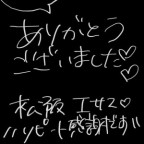 ありがとう
ございました♡♡
松阪 エサス♡
〃リピート感謝です〃